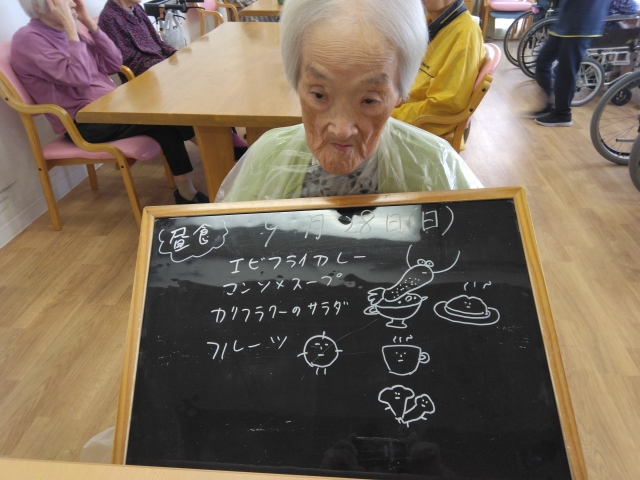 昼食
9月28日(日)
エビフライカレー
マンツメスープ
カリフラワーのサラダ
フルーツ